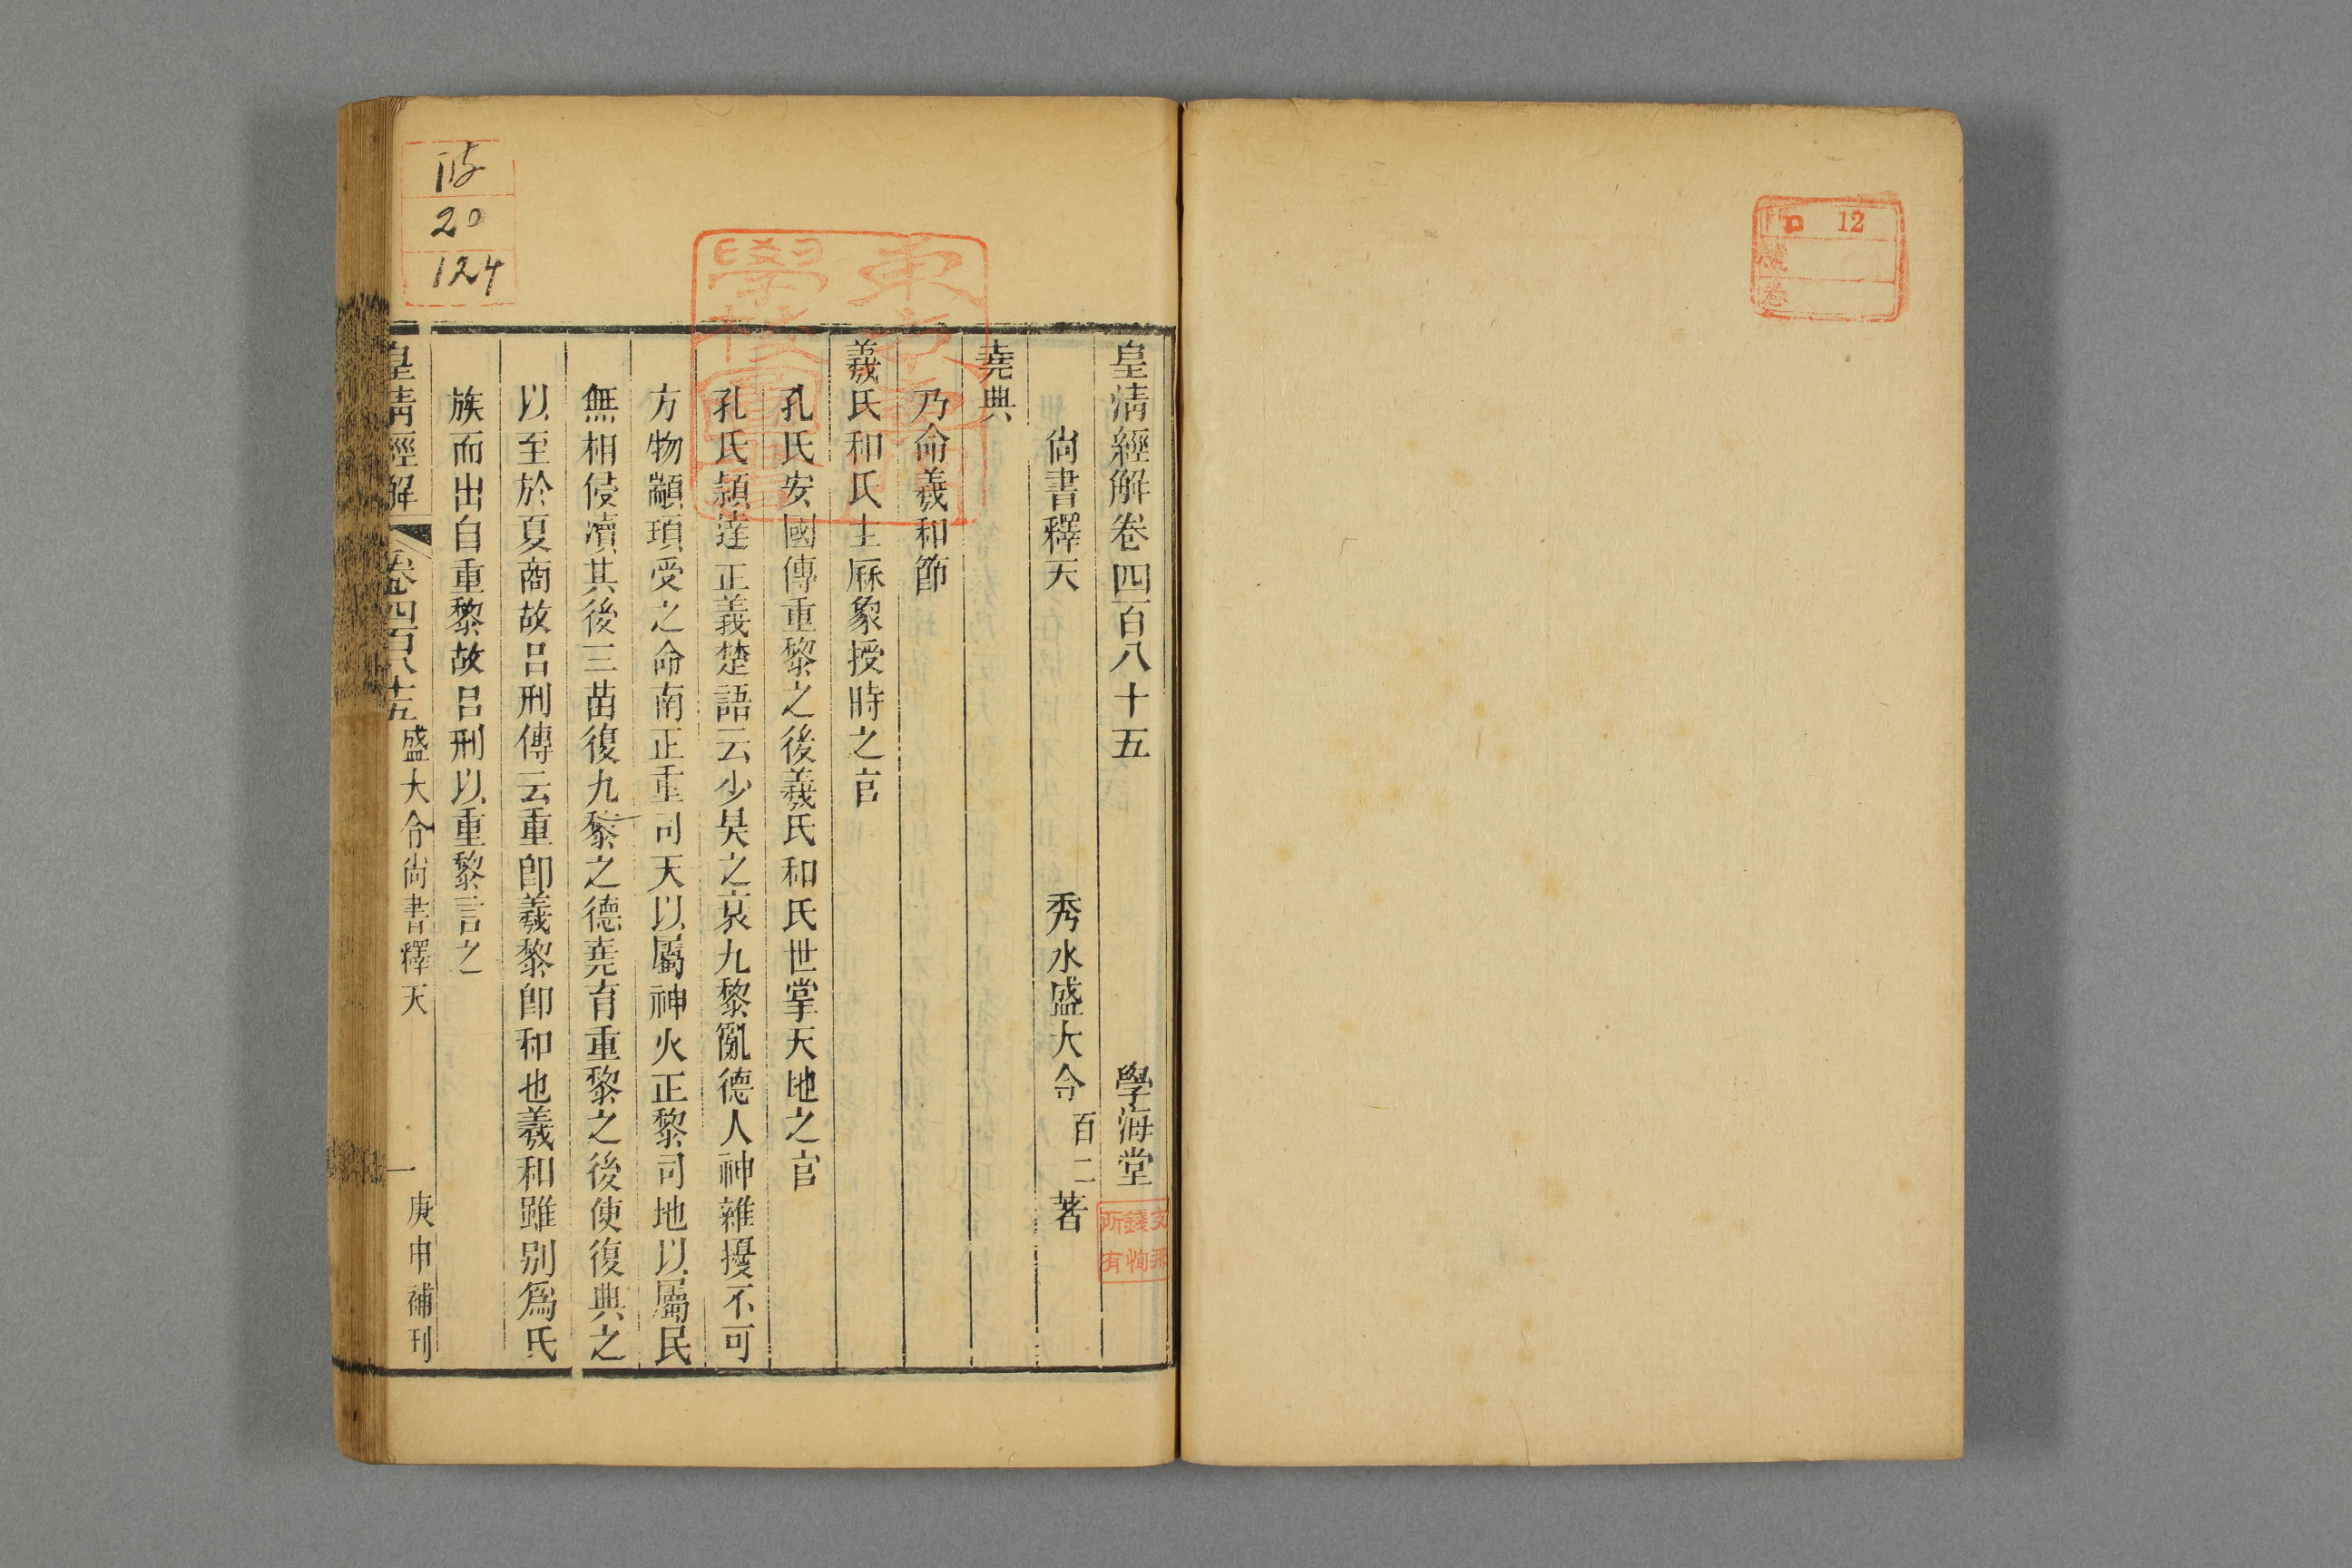 12
皇清經解卷四百八十五
學海堂
尙書釋天
秀水盛大令百二著
堯典
乃命羲和節
羲氏和氏主厤象授時之官
孔氏安國傳重黎之後羲氏和氏世掌天地之官
孔氏穎達正義楚語云少昊之衰九黎亂德人神雜擾不可
方物顓頊受之命南正重司天以屬神火正黎司地以屬民
無相侵瀆其後三苗復九黎之德堯育重黎之後使復典之
以至於夏商故呂刑傳云重卽羲黎卽和也羲和雖別爲氏
族而出自重黎故呂刑以重黎言之
皇淸經解
卷四百八十五
盛大令尙書釋天
一
庚申補刊
20
124